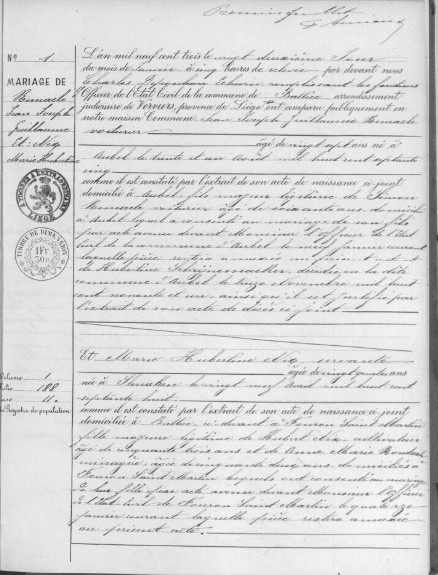 Premier feuillet
N° 1
MARIAGE DE
Remacle
Jean Joseph
Guillaume
Et Nix
Marie Hubertine
TIMBRE DE DIMENSION
LIÈGE
L'An mil neuf cent trois le vingt deuxième jour
du mois de Janvier à cinq heures de relevée par devant nous
Charles remplissant les fonctions
d'Officier de l'Etat Civil de la commune de Battice arrondissement
judiciaire de Verviers, province de Liège ont comparu publiquement en
notre maison Commune Jean Joseph Guillaume Remacle
voiturier
âgé de vingt sept ans né à
Aubel le trente et un Août mil huit cent septante
cinq
comme il est constaté par l'extrait de son acte de naissance ci-joint
domicilié à Aubel fils majeur légitime de Simon
Remacle voiturier âgé de soixante ans domicilié
à Aubel lequel a consenti au mariage de son fils
par acte avenu devant Monsieur l'officier de l'état
civil de la commune d'Aubel le neuf janvier courant
laquelle pièce restera annexée au présent acte et
de Hubertine décédée en la dite
commune d'Aubel le treize Novembre mil huit
cent nonante et un ainsi qu'il est justifié par
l'extrait de son acte de décès ci joint
Et Marie Hubertine Nix servante
âgée de vingt quatre ans
née à le vingt neuf Avril mil huit cent
septante huit
comme il est constaté par l'extrait de son acte de naissance ci-joint
domiciliée à Battice ci-devant à Fouron Saint Martin
fille majeure légitime de Hubert Nix cultivateur
âgé de cinquante trois ans et de Anne Marie
ménagère, âgée de cinquante deux ans domiciliés à
Fouron Saint Martin lesquels ont consenti au mariage
de leur fille par acte avenu devant Monsieur l'officier
de l'état civil de Fouron Saint Martin le quatorze
janvier courant laquelle pièce restera annexée
au présent acte.
Volume 1
Folio 188
Case 11
du Registre de population